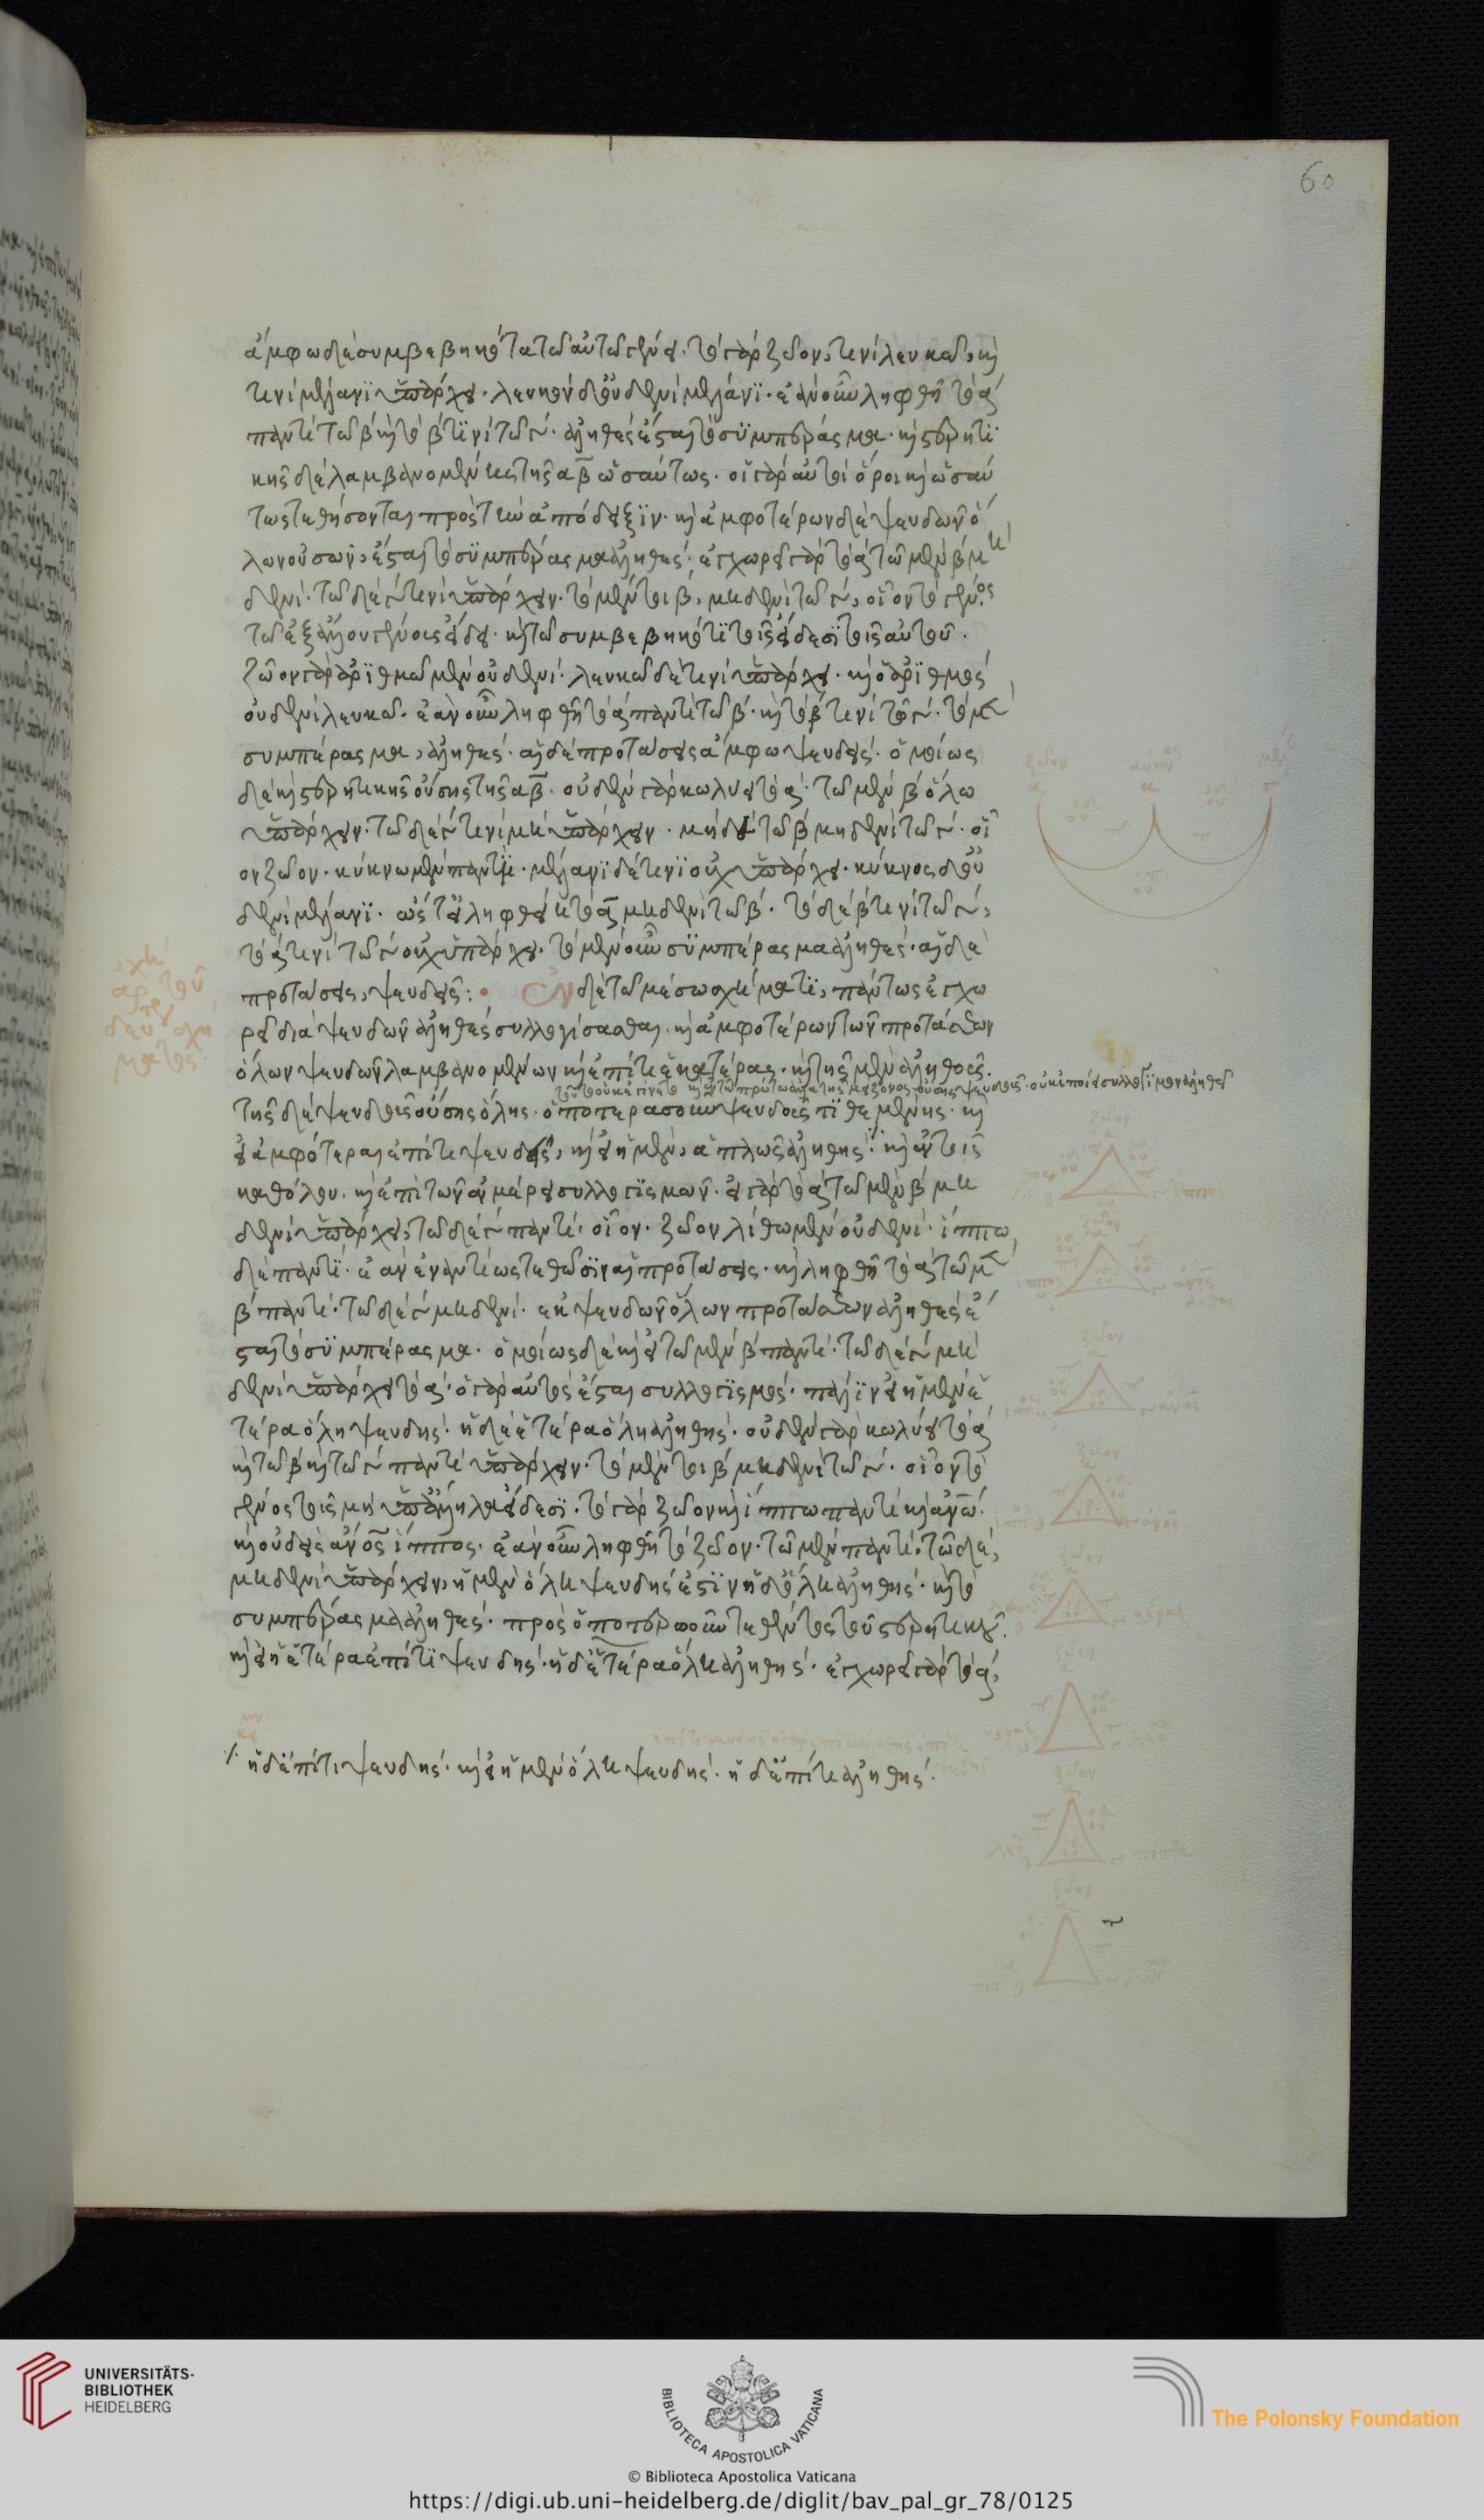 60
ἄμφω δὲ συμβεβηκότα τῷ αὐτῷ εἴδει. τὸ γὰρ ζῷον, τινὶ λευκῷ, καὶ
τινὶ μέλανι ὑπάρχει. λευκὸν δ' οὐδενὶ μέλανι. ἐὰν οὖν ληφθῇ τὸ α
παντὶ τῷ β καὶ τὸ β τινὶ τῷ γ. ἀληθὲς ἔσται τὸ συμπέρασμα. καὶ στερητι
κῆς δὲ λαμβανομένης τῆς αβ ὡσαύτως. οἱ γὰρ αὐτοὶ ὅροι καὶ ὡσαύ
τως τεθήσονται πρὸς τὴν ἀπόδειξιν. καὶ ἀμφοτέρων δὲ ψευδῶν ὅ
λων οὐσῶν, ἔσται τὸ συμπέρασμα ἀληθές. ἐγχωρεῖ γὰρ τὸ α τῷ μὲν β μη
δενὶ. τῷ δὲ γ τινὶ ὑπάρχειν. τὸ μέντοι β, μηδενὶ τῷ γ, οἷον τὸ γένος
τῷ ἐξ ἄλλου γένους εἴδει. καὶ τῷ συμβεβηκότι τοῖς εἴδεσι τοῖς αὐτοῦ.
ζῷον γὰρ ἀριθμῷ μὲν οὐδενὶ. λευκῷ δὲ τινὶ ὑπάρχει. καὶ ὁ ἀριθμὸς
οὐδενὶ λευκῷ. ἐὰν οὖν ληφθῇ τὸ α παντὶ τῷ β. καὶ τὸ β τινὶ τῷ γ. τὸ μὲν
συμπέρασμα, ἀληθές. αἱ δὲ προτάσεις ἄμφω ψευδεῖς. ὁμοίως
δὲ καὶ στερητικῆς οὔσης τῆς αβ. οὐδὲν γὰρ κωλύει τὸ α. τῷ μὲν β ὅλῳ
ὑπάρχειν. τῷ δὲ γ τινὶ μὴ ὑπάρχειν. μηδὲ τὸ β μηδενὶ τῷ γ. οἷ
ον ζῷον. κύκνῳ μὲν παντὶ. μέλανι δὲ τινὶ οὐχ ὑπάρχει. κύκνος δ' οὐ
δενὶ μέλανι. ὥστ' εἰ ληφθείη τὸ α μηδενὶ τῷ β. τὸ δὲ β τινὶ τῷ γ,
τὸ α τινὶ τῷ γ οὐχ ὑπάρχει. τὸ μὲν οὖν συμπέρασμα ἀληθές. αἱ δὲ
προτάσεις, ψευδεῖς: Ἐν δὲ τῷ μέσῳ σχήματι, πάντως ἐγχω
ρεῖ διὰ ψευδῶν ἀληθὲς συλλογίσασθαι. καὶ ἀμφοτέρων τῶν προτάσεων
ὅλων ψευδῶν λαμβανομένων καὶ ἐπί τι ἑκατέρας. καὶ τῆς μὲν ἀληθοῦς.
τῆς δὲ ψευδοῦς οὔσης ὅλης. ὁποτερασοῦν ψευδοῦς τιθεμένης. καὶ
εἰ ἀμφότεραι ἐπί τι ψευδεῖς, καὶ εἰ ἡ μὲν, ἁπλῶς ἀληθής. καὶ ἐν τοῖς
καθόλου. καὶ ἐπὶ τῶν ἐν μέρει συλλογισμῶν. εἰ γὰρ τὸ α τῷ μὲν β μη
δενὶ ὑπάρχει, τῷ δὲ γ παντί. οἷον. ζῷον λίθῳ μὲν οὐδενὶ. ἵππῳ
δὲ παντί. ἐὰν ἐναντίως τεθῶσιν αἱ προτάσεις. καὶ ληφθῇ τὸ α τῷ μὲν
β παντὶ. τῷ δὲ γ μηδενὶ. ἐκ ψευδῶν ὅλων προτάσεων ἀληθὲς ἔ
σται τὸ συμπέρασμα. ὁμοίως δὲ καὶ εἰ τῷ μὲν β παντὶ. τῷ δὲ γ μη
δενὶ ὑπάρχει τὸ α. ὁ γὰρ αὐτὸς ἔσται συλλογισμός. πάλιν εἰ ἡ μὲν ἑ
τέρα ὅλη ψευδής. ἡ δὲ ἑτέρα ὅλη ἀληθής. οὐδὲν γὰρ κωλύει τὸ α
καὶ τῷ β καὶ τῷ γ παντὶ ὑπάρχειν. τὸ μέντοι β μηδενὶ τῷ γ. οἷον τὸ
γένος τοῖς μὴ ὑπ' ἄλληλα εἴδεσι. τὸ γὰρ ζῷον καὶ ἵππῳ παντὶ καὶ ἀνῶ.
καὶ οὐδεὶς ἄνος ἵππος. ἐὰν οὖν ληφθῇ τὸ ζῷον. τῷ μὲν παντὶ. τῷ δὲ,
μηδενὶ ὑπάρχειν, ἡ μὲν ὅλη ψευδής ἐστιν ἡ δ' ὅλη ἀληθής. καὶ τὸ
συμπέρασμα ἀληθές. πρὸς ὁποτερῳοῦν τεθέντος τοῦ στερητικοῦ.
καὶ εἰ ἡ ἑτέρα ἐπί τι ψευδής. ἡ δ' ἑτέρα ὅλη ἀληθής. ἐγχωρεῖ γὰρ τὸ α,
ἡ δ' ἐπί τι ψευδής. καὶ εἰ ἡ μὲν ὅλη ψευδής. ἡ δ' ἐπί τι ἀληθής.
UNIVERSITÄTS-
BIBLIOTHEK
HEIDELBERG
BIBLIOTECA APOSTOLICA VATICANA
The Polonsky Foundation
© Biblioteca Apostolica Vaticana
https://digi.ub.uni-heidelberg.de/diglit/bav_pal_gr_78/0125